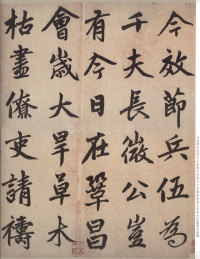 今效節兵伍為
千夫長微公豈
有今日在鞏昌
會歲大旱草木
枯盡僚吏請禱